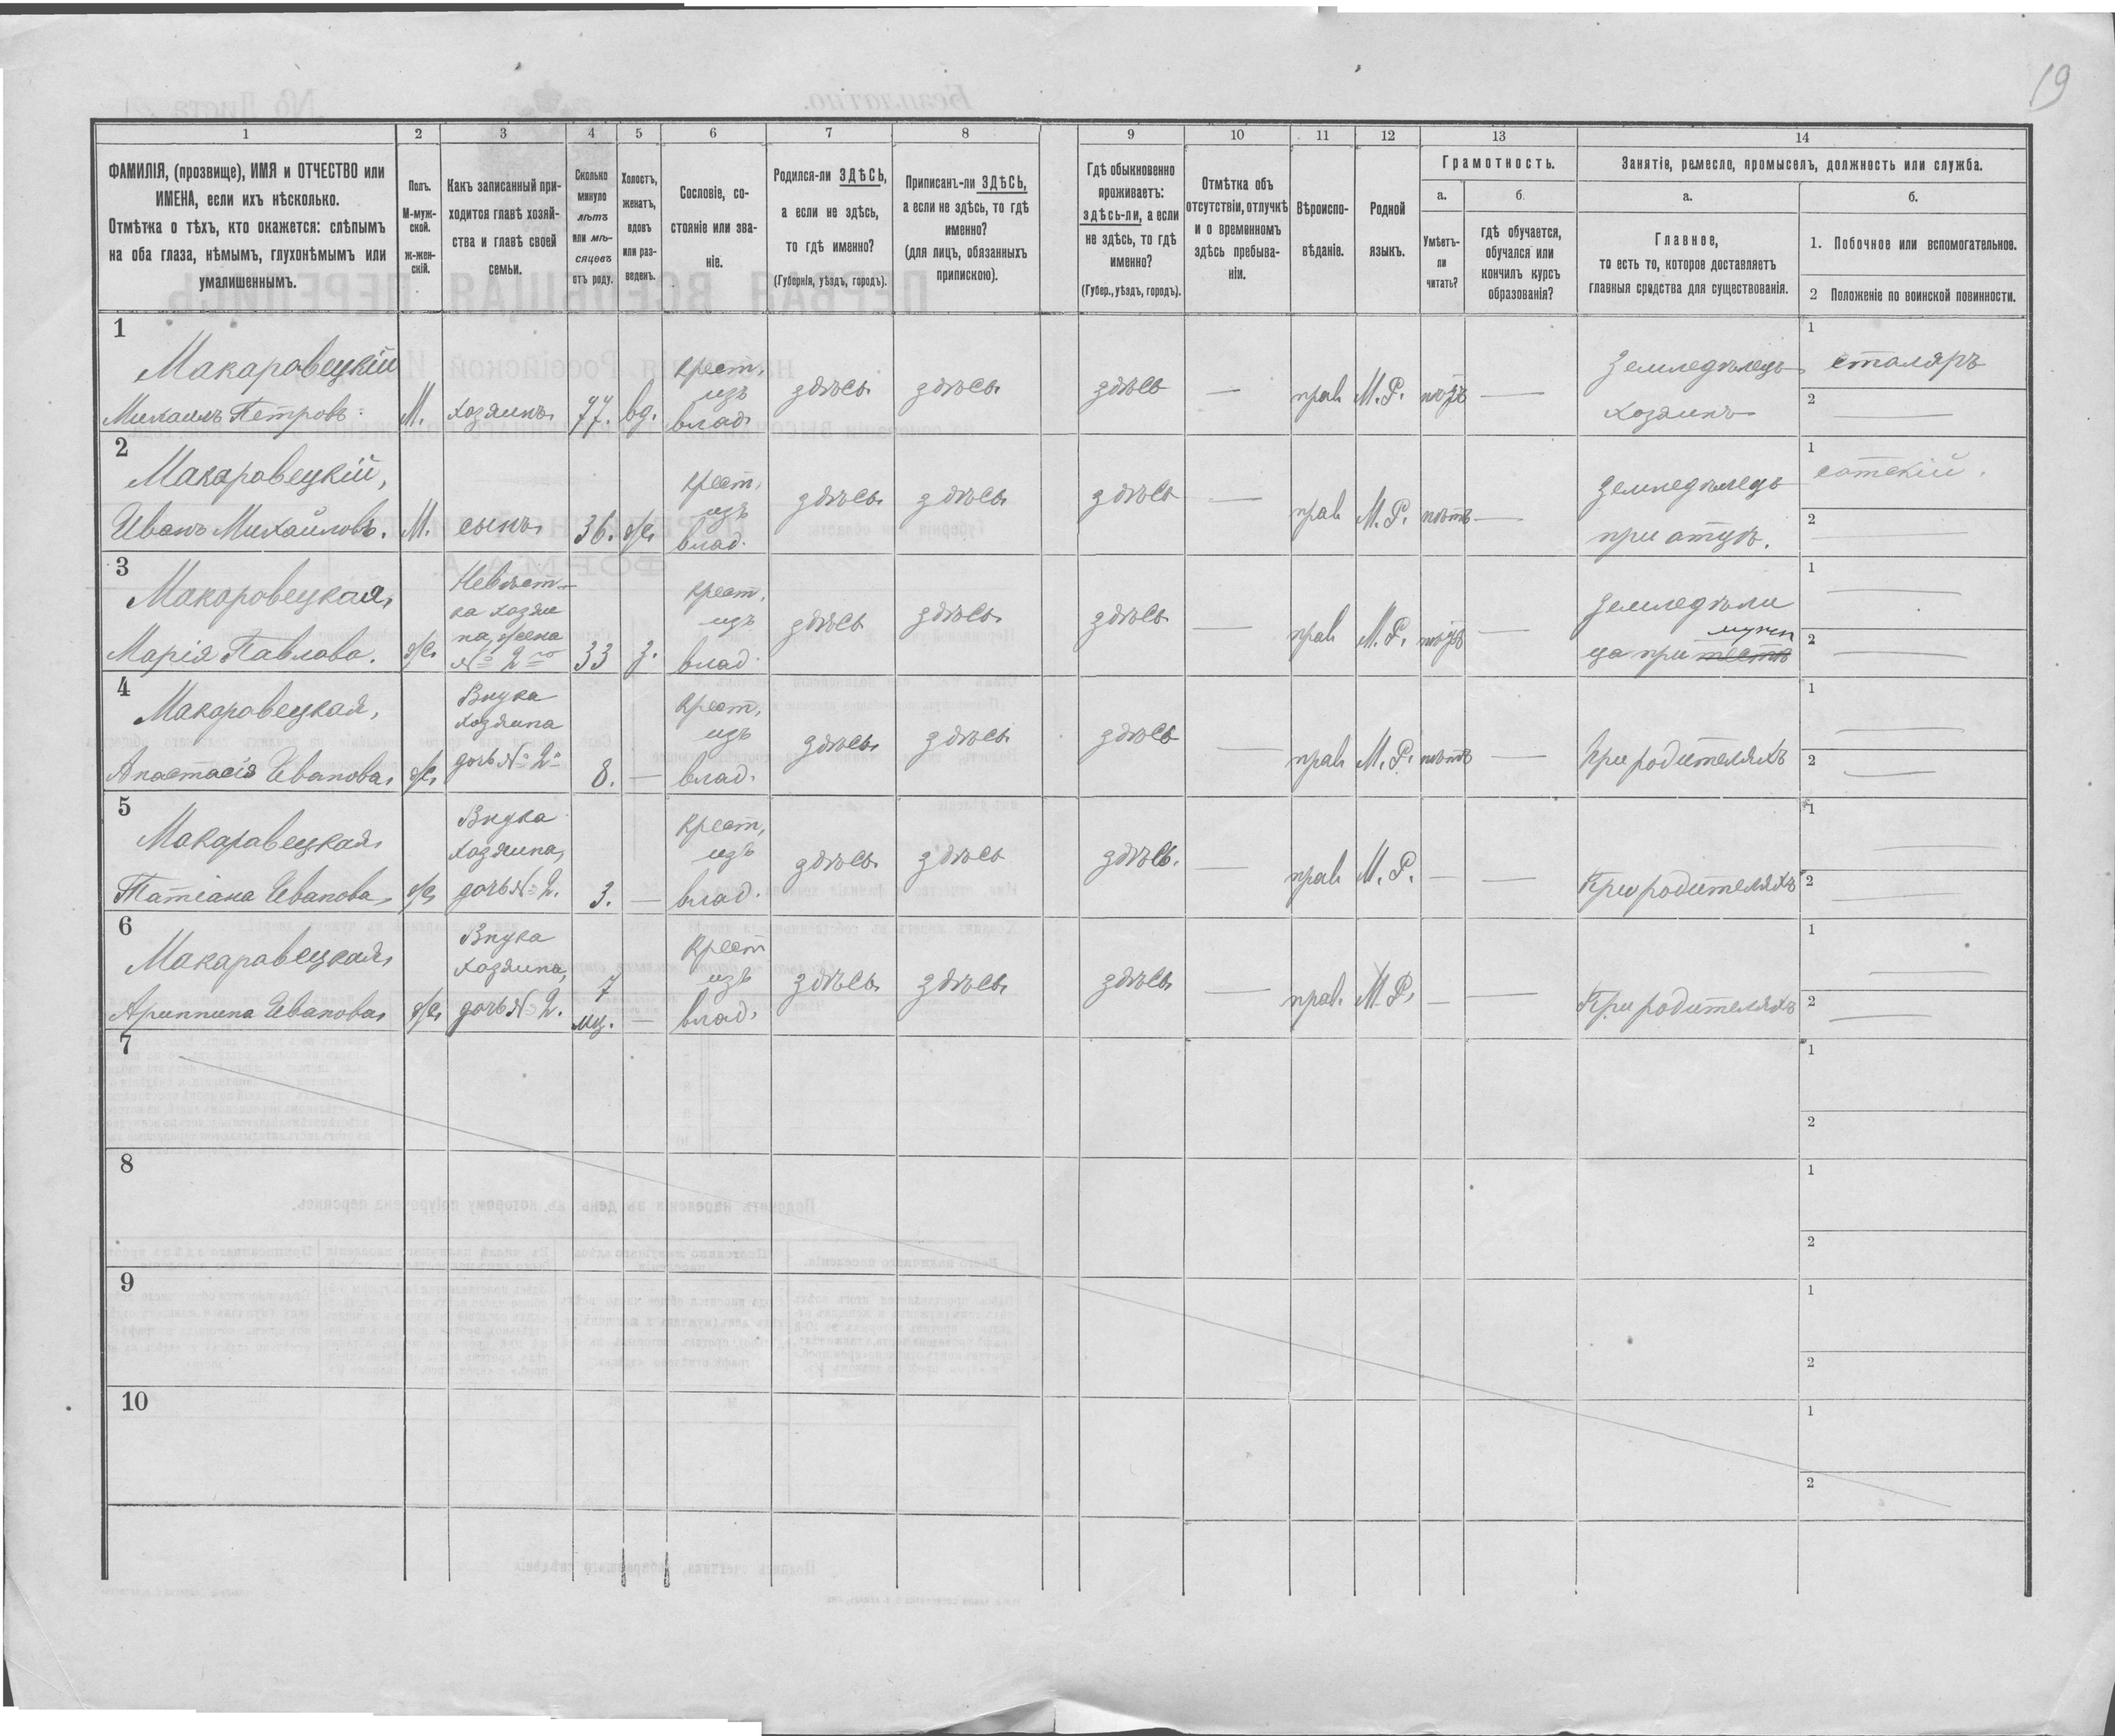 19
1 2 3 4 5 6 7 8 9 10 11 12 13 14
ФАМИЛІЯ, (прозвище), ИМЯ и ОТЧЕСТВО или
ИМЕНА, если ихъ нѣсколько.
Отмѣтка о тѣхъ, кто окажется: слѣпымъ
на оба глаза, нѣмымъ, глухонѣмымъ или
умалишеннымъ.
Полъ.
М-муж-
ской.
ж-жен-
скій.
Какъ записанный при-
ходится главѣ хозяй-
ства и главѣ своей
семьи.
Сколько
минуло
лѣтъ
или мѣ-
сяцевъ
отъ роду.
Холостъ,
женатъ,
вдовъ
или раз-
веденъ.
Сословіе, со-
стояніе или зва-
ніе.
Родился-ли ЗДѢСЬ,
а если не здѣсь,
то гдѣ именно?
(Губернія, уѣздъ, городъ).
Приписанъ-ли ЗДѢСЬ,
а если не здѣсь, то гдѣ
именно?
(для лицъ, обязанныхъ
припискою).
Гдѣ обыкновенно
проживаетъ:
здѣсь-ли, а если
не здѣсь, то гдѣ
именно?
(Губер., уѣздъ, городъ).
Отмѣтка объ
отсутствіи, отлучкѣ
и о временномъ
здѣсь пребыва-
ніи.
Вѣроиспо-
вѣданіе.
Родной
языкъ.
Грамотность.
а.
Умѣетъ-
ли
читать?
б.
гдѣ обучается,
обучался или
кончилъ курсъ
образованія?
Занятіе, ремесло, промыселъ, должность или служба.
а.
Главное,
то есть то, которое доставляетъ
главныя средства для существованія.
б.
1. Побочное или вспомогательное.
2 Положеніе по воинской повинности.
1
Макаровецкій
Михаилъ Петровъ
М.
хозяинъ
77.
вд.
крест.
изъ
влад.
здѣсь
здѣсь
здѣсь
—
прав
М.Р.
нѣтъ
—
Земледѣлецъ
хозяинъ
1 столяръ
2 —
2
Макаровецкій,
Иванъ Михайловъ.
М.
сынъ
36.
ж.
крест.
изъ
влад.
здѣсь
здѣсь
здѣсь
—
прав
М.Р.
нѣтъ
—
Земледѣлецъ
при отцѣ.
1 сотскій.
2 —
3
Макаровецкая,
Марія Павлова.
ж.
Невѣст-
ка хозяи
на, жена
№ 2го
33
з.
крест.
изъ
влад.
здѣсь
здѣсь
здѣсь
—
прав
М.Р.
нѣтъ
—
Земледѣли
ца при тестѣ
1 —
2 —
4
Макаровецкая,
Анастасія Иванова
ж.
Внука
хозяина
дочь № 2
8.
—
крест.
изъ
влад.
здѣсь
здѣсь
здѣсь
—
прав
М.Р.
нѣтъ
—
при родителяхъ
1 —
2 —
5
Макаровецкая
Татіана Иванова
ж.
Внука
хозяина,
дочь № 2.
3.
—
крест.
изъ
влад.
здѣсь
здѣсь
здѣсь.
—
прав
М.Р.
—
—
При родителяхъ
1 —
2 —
6
Макаровецкая
Агриппина Иванова
ж.
Внука
хозяина,
дочь № 2.
7
мц.
—
крест
изъ
влад.
здѣсь
здѣсь
здѣсь
—
прав.
М.Р.
—
—
При родителяхъ
1 —
2 —
7
1
2
8
1
2
9
1
2
10
1
2